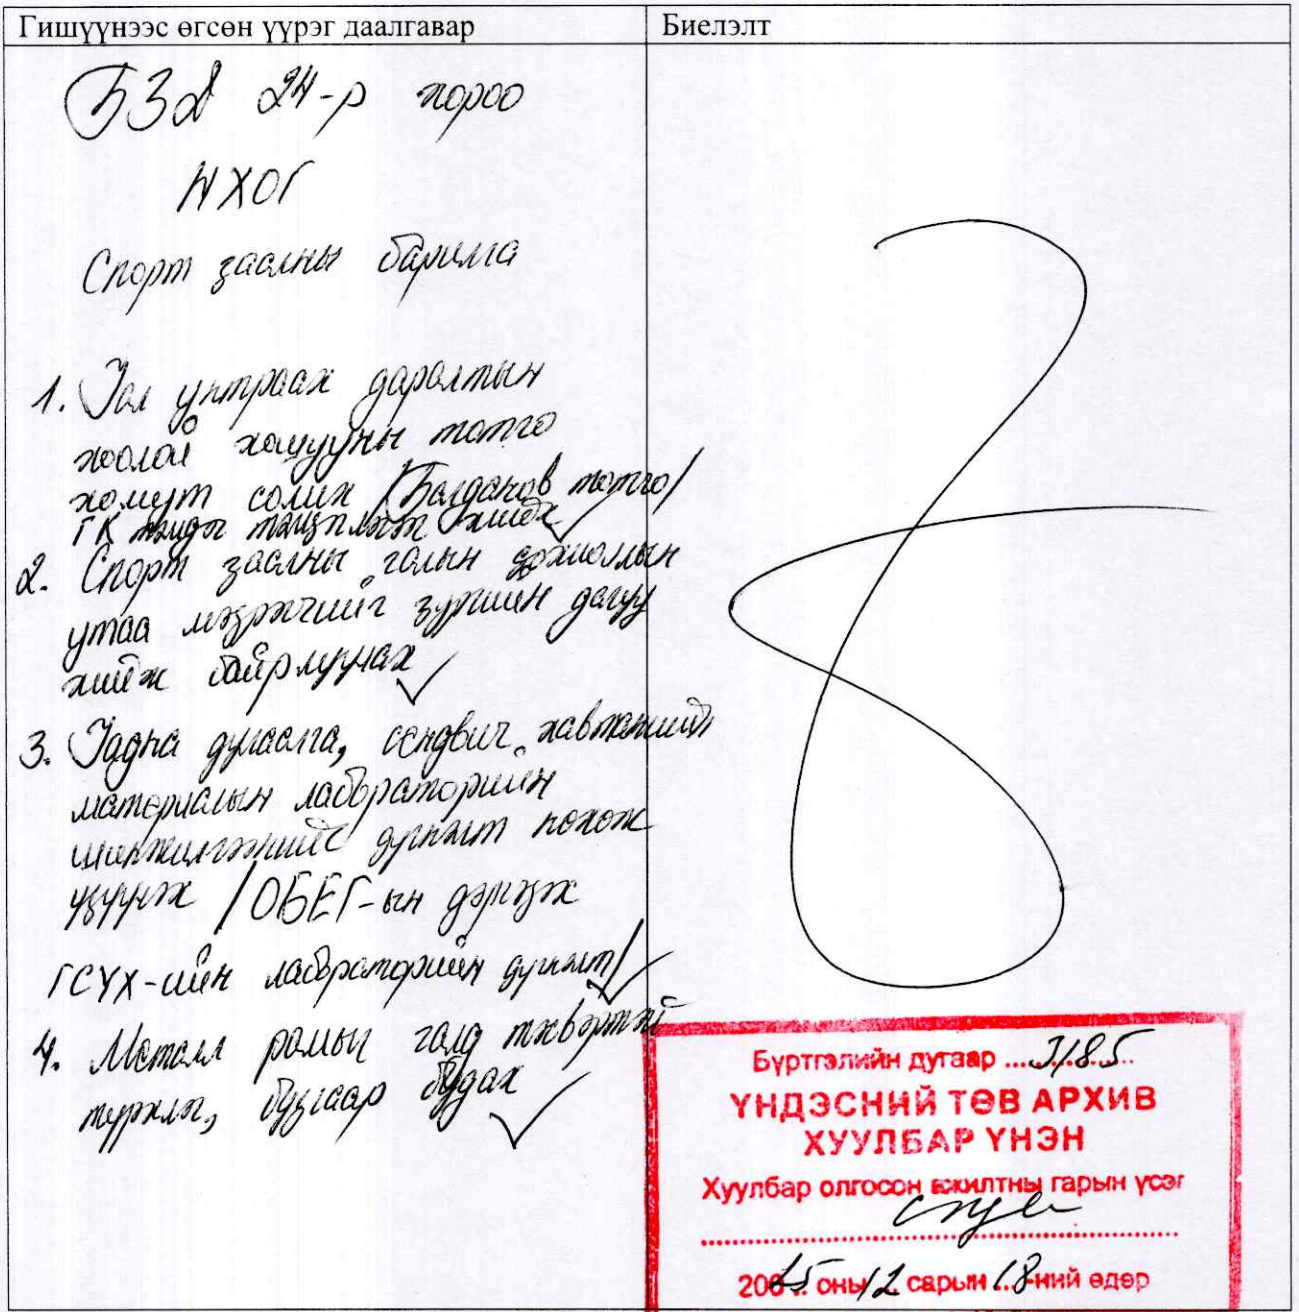 Гишүүнээс өгсөн үүрэг даалгавар
Биелэлт
БЗД 24-р хороо
НХОГ
Спорт заалны барилга
1. Гал унтраах даралтын
хоолой хошууны тотго
хомут солих /Богданов тотго/
ГК хийх
2. Спорт заалны галын дохиоллын
утаа мэдрэгчийг зургийн дагуу
хийж байрлуулах
3. Гадна дулаалга, сендвич хавтангийн
материалын лабораторийн
шинжилгээний дүгнэлт нөхөж
үзүүлэх /ОБЕГ-ын дэргэдэх
ГСҮХ-ийн лабораторийн дүгнэлт/
4. Металл рамыг галд тэсвэртэй
будгаар будах
Бүртгэлийн дугаар ... 3185
ҮНДЭСНИЙ ТӨВ АРХИВ
ХУУЛБАР ҮНЭН
Хуулбар олгосон ажилтны гарын үсэг
2025 оны 12 сарын 18-ний өдөр